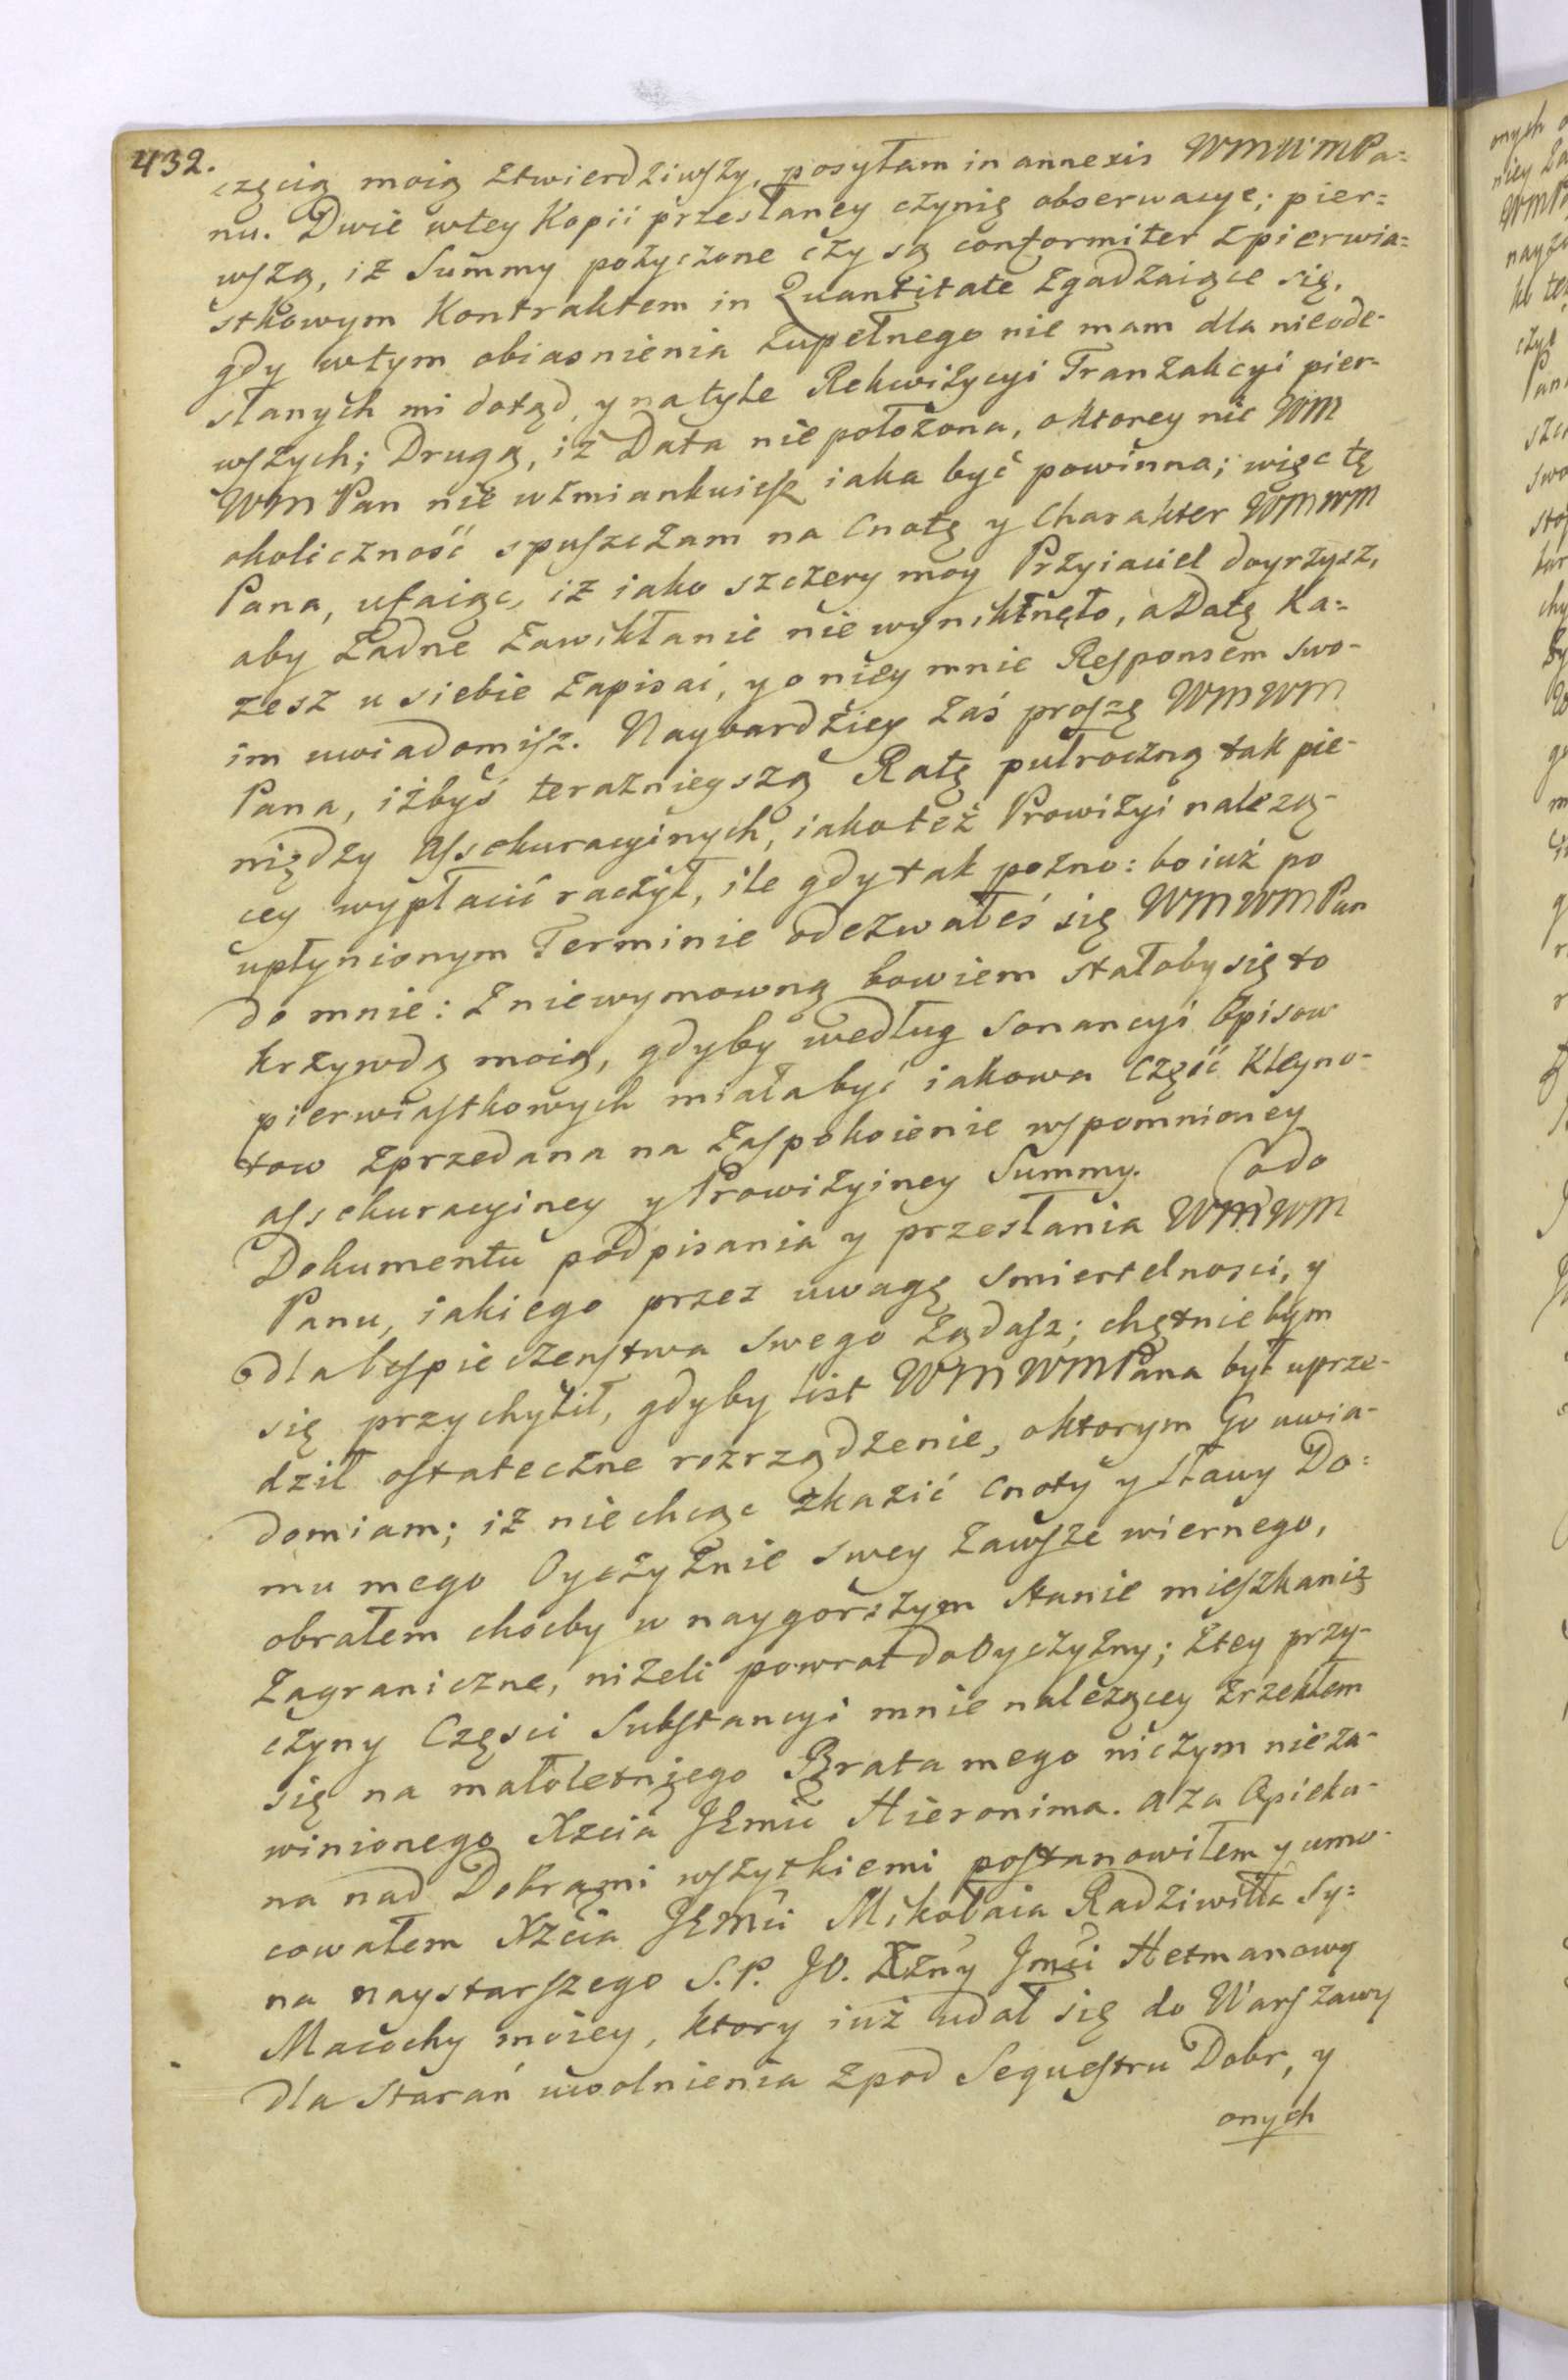 432.
częcią moią ztwierdziwszy, posyłam in annexis WMWMPa=
nu. Dwie wtey Kopii przesłaney czynię obserwacye; pier=
wszą, iż Summy pożyczone czy są conformiter zpierwia=
stkowym Kontraktem in Quantitate zgadzaiące się,
gdy wtym obiasnienia zupełnego nie mam dla nieode-
słanych mi dotąd, y natyle Rekwizycyi Tranzakcyi pier-
wszych; Drugą, iż Data nie położona, oktorey nic WM
WMPan nie wzmiankuiesz iaka być powinna; więc tę
okoliczność spuszczam na Cnotę y Charakter WMWM
Pana, ufaiąc, iż iako szczery moy Przyiaciel doyrzysz,
aby żadne zawikłanie niewynikłnęło, a Datę Ka=
żesz u siebie zapisać, y o niey mnie Responsem swo-
im uwiadomisz. Naybardziey zaś proszę WMWM
Pana, iżbyś terazniegszą Ratę pułroczną tak pie-
niędzy Assekuracyinych, iakoteż Prowizyi należą-
cey wypłacić raczył, ile gdy tak pozno: bo iuż po
upłynionym Terminie odezwałeś się WMWMPan
do mnie: z niewymowną bowiem stałoby się to
krzywdą moią, gdyby według Sonancyi Opisow
pierwiastkowych miała być iakowa Część Kleyno-
tow zprzedana na zaspokoienie wspomnioney
assekuracyiney y Prowizyiney Summy. Codo
Dokumentu podpisania y przesłania WMWM
Panu, iakiego przez uwagę smiertelnosci, y
dla bespieczenstwa swego żądasz; chętnie bym
się przychylił, gdyby list WMWMPana był uprze-
dził ostateczne rozrządzenie, oktorym Go uwia-
domiam; iż niechcąc zkazić Cnoty y sławy Do=
mu mego Oyczyźnie swey zawsze wiernego,
obrałem choćby w naygorszym stanie mieszkanię
zagraniczne, niżeli powrot do Oyczyzny; ztey przy-
czyny Części Substancyi mnie należącey zrzekłem
się na małoletniego Brata mego niczym nieza-
winionego Xzcia JEmci Hieronima. a za Opieku-
na nad Dobrami wszytkiemi postanowiłem y umo-
cowałem Xzcia JEMci Mikołaia Radziwiłła Sy=
na naystarszego S.P. JO. Xżny Jmci Hetmanowy
Macochy moiey, ktory iuż udał się do Warszawy
dla Starań uwolnienia zpod Sequestru Dobr, y
onych